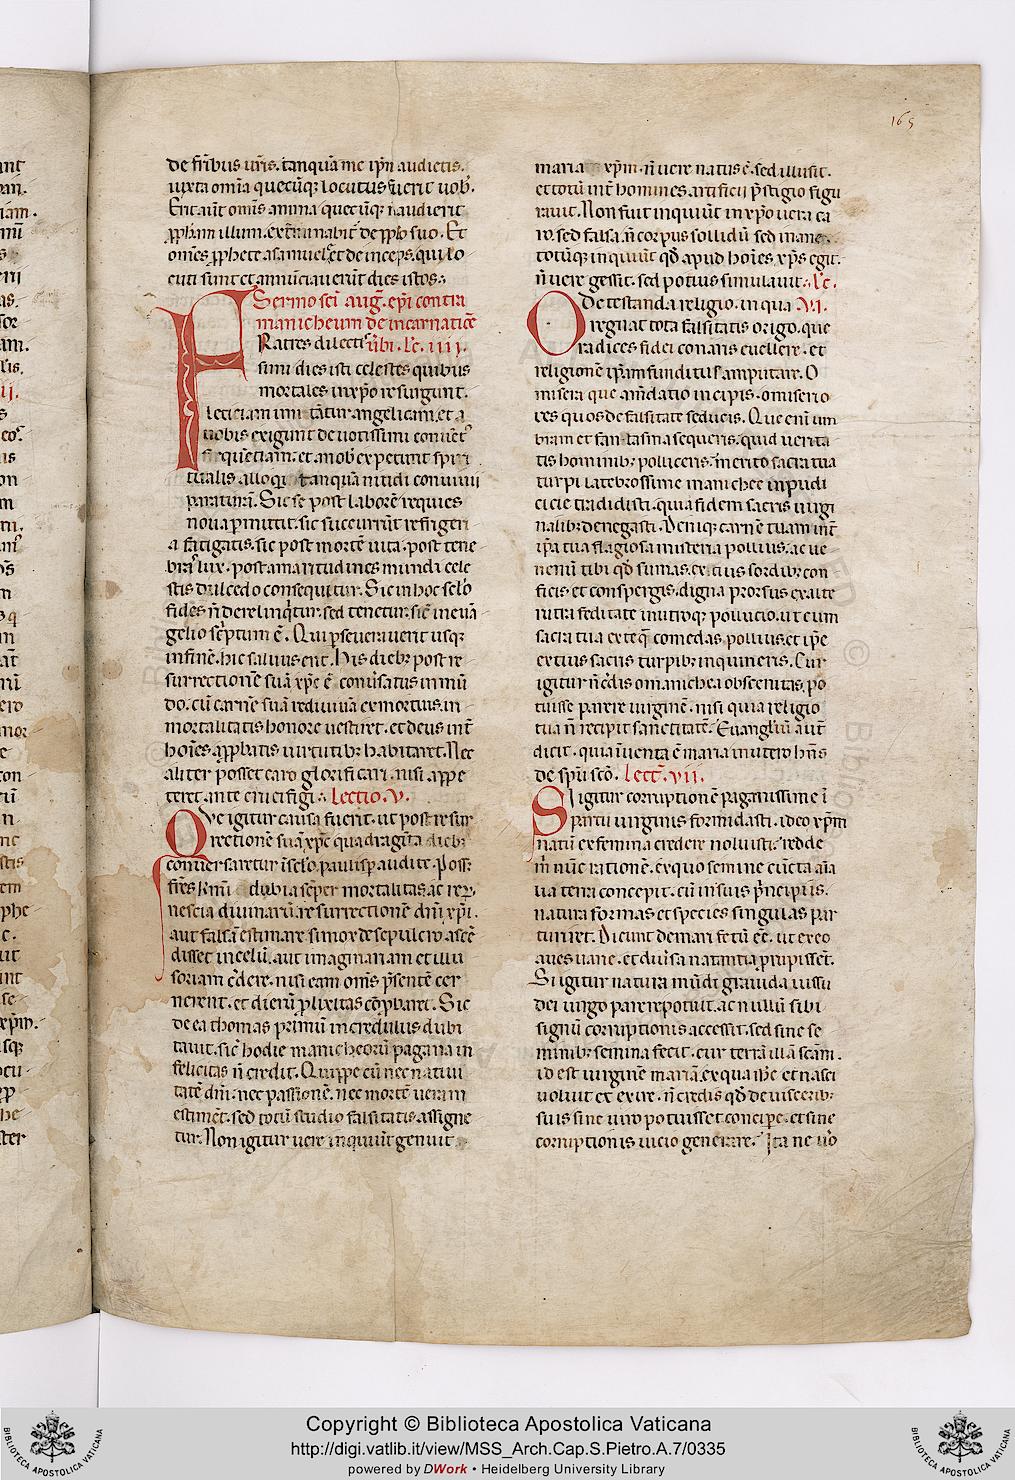 165
de fr̄ibus ur̄is. tanquā me ip̄m audietis.
iuxta om̄ia quecūq; locutus fuerit uob̄.
Erit aūt omīs anima quecūq; n̄ audierit
ꝓph̄am illum. ext̄minabit̄ de pplo suo. Et
om̄es ꝓphete a samuel et deinceps. qui lo
cuti sunt et annūtiauerūt dies istos.
Sermo sc̄i aug. ep̄i contra
manicheum de incarnatiōe
v̄bi. Lc̄. iiij.
FRatres dilectis
simi dies isti celestes quibus
mortales in xp̄o resurgunt.
leticiam imitātur angelicam. et a
nobis exigunt deuotissimi conuēt᷒
frequētiam. et a nob̄ expetunt spiri
tualis alloqii tanquā nitidi conuiuii
paraturā. Sic se post laborē requies
noua ꝑmittit. sic succurrūt refrigeri
a fatigatis. sic post mortē uita. post tene
bras lux. post amaritudines mundi cele
stis dulcedo consequitur. Sic in hoc sc̄lo
fides n̄ derelinq̄tur. sed tenetur. sic̄ in euā
gelio sc̄ptum ē. Qui ꝑseuerauerit usq;
in finē. hic saluus erit. His dieb; post re
surrectionē suā xp̄c ē conuersatus in mū
do. cū carnē suā rediuiuā ex mortuis in
mortalitatis honore uestiret. et deus int̄
hoīes ꝓbatis uirtutib; habitaret. Nec
aliter posset caro glorificari. nisi appe
teret ante crucifigi. Lectio. V.
QVe igitur causa fuerit. ut post resur
rectionē suā xp̄c quadragīta dieb;
conuersaretur ī sc̄lo. paulisp audite. Poss;
fr̄es k̄mi dubia sēper mortalitas ac rerū
nescia diuinarū. resurrectionē dn̄i xp̄i.
aut falsā estimare. si mox de sepulcro ascē
disset in celū. aut imaginariam et illu
soriam c̄dere. nisi eam om̄s p̄sentē cer
nerent. et dierū ꝓlixitas cōprobaret. Sic
de ea thomas primū incredulus dubi
tauit. sic̄ hodie manicheorū pagana in
felicitas n̄ credit. Quippe cū nec natiui
tatē dn̄i. nec passionē. nec mortē ueram
estiment. sed totū studio falsitatis assigne
tur. Non igitur uere inquiūt genuit
maria xp̄m. n̄ uere natus ē. sed illusit.
et totū int̄ homines artificii p̄stigio figu
rauit. Non fuit inquiūt in xp̄o uera ca
ro. sed falsa. n̄ corpus sollidū sed inane.
totūq; inquiūt qd̄ apud hoīes xp̄s egit.
n̄ uere gessit. sed potius simulauit. Lc̄.
VI.
O Detestanda religio. in qua
regnat tota falsitatis origo. que
radices fidei conaris euellere. et
religionē ip̄am funditus amputare. O
misera que a mēdatio incipis. o miserio
res quos de falsitate seducis. Que enī um
bram et fantasma sequeris. quid uerita
tis hominib; polliceris. merito sacra tua
turpi latebrossime manichee inpudi
cicie tradidisti. quia fidem sacris uirgi
nalib; denegasti. Deniq; carnē tuam int̄
ip̄a tua flagiosa misteria polluis. ac ue
nenū tibi qd̄ sumas. ex tuis sordib; con
ficis et conspergis. digna prorsus ex alte
rutra feditate in utroq; pollucio. ut cum
sacra tua ex te q̄ comedas. polluis. et ip̄e
ex tuis sacris turpib; inquineris. Cur
igitur n̄ c̄dis o manichea obscenitas. po
tuisse parere uirginē. nisi quia religio
tua n̄ recipit sanctitatē. Euangl̄ium aūt
dicit. quia īuenta ē maria in utero hn̄s
de spū scō. Lect̄. vii.
SI igitur corruptionē paganissime ī
partu uirginis formidasti. ideo xp̄m
natū ex femina credere noluisti. redde
m̄ nūc rationē. ex quo semine cūcta aīa
uia terra concepit. cū in suis p̄ncipiis.
natura formas et species singulas par
turiret. Dicunt de mari fetū eē. ut ex eo
aues uane. et diu̇sa natantia prupisset.
Si igitur natura mūdi grauida iussu
dei uirgo parere potuit. ac nullū sibi
signū corruptionis accessit. sed sine se
minib; semina fecit. cur terrā illā scām.
id est uirginē mariā. ex qua ip̄e et nasci
uoluit et exire. n̄ credis qd̄ de uiscerib;
suis sine uiro potuisset concipe. et sine
corruptionis uicio generare. Ita ne u̇o
Copyright © Biblioteca Apostolica Vaticana
http://digi.vatlib.it/view/MSS_Arch.Cap.S.Pietro.A.7/0335
powered by DWork • Heidelberg University Library
BIBLIOTECA APOSTOLICA VATICANA
BIBLIOTECA APOSTOLICA VATICANA